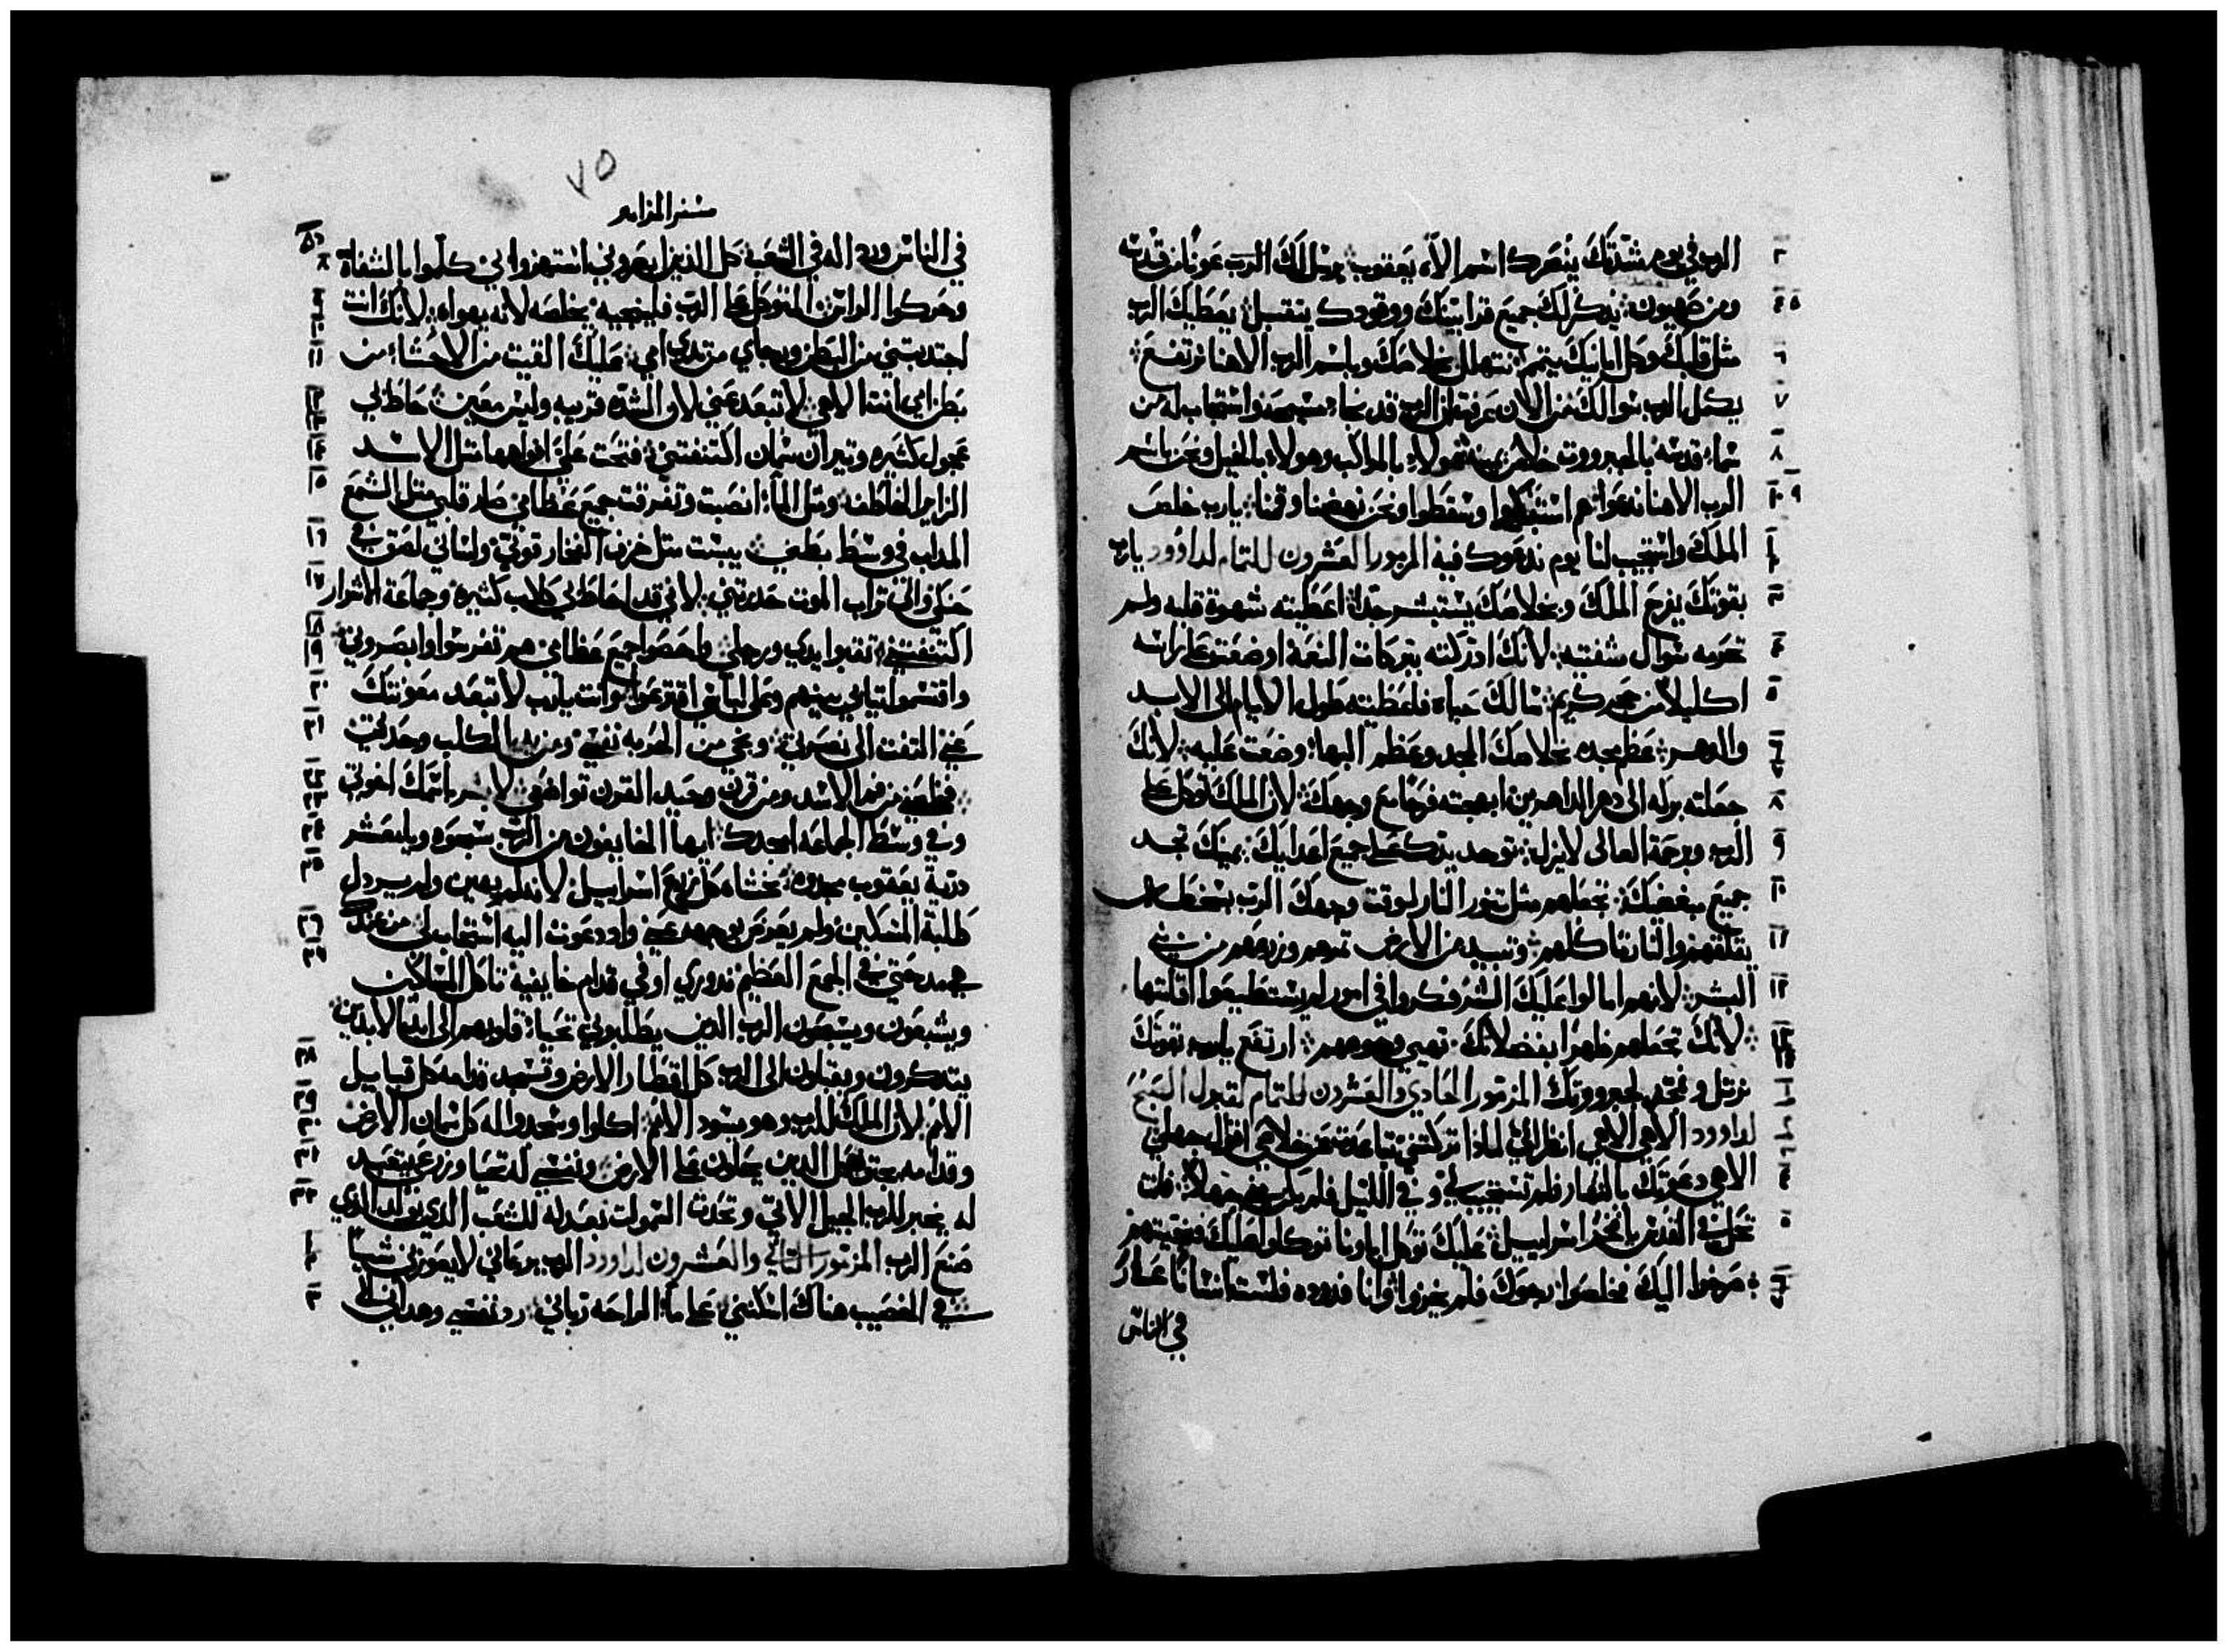 الرب في يوم شدتك ينصرك اسم الاه يعقوب يرسل لك الرب عونا من قدسه
ومن صهيون يذكر لك جميع قرابينك ووقودك يتقبل يعطيك الرب
مثل قلبك وكل ارايك يتمم نتهلل بخلاصك وباسم الرب الاهنا نرتفع
يكمل الرب سوالك من الان عرفت ان الرب قد نجا مسيحه واستجاب له من
سماء قدسه بالجبروت خلاص يمينه هولاء بالمراكب وهولاء بالخيل ونحن باسم
الرب الاهنا ندعوا هم وسقطوا ونحن نهضنا وقمنا يارب خلص
الملك واستجب لنا يوم ندعوك فيه المزمور العشرون للتمام لداوود يارب
بقوتك يفرح الملك وبخلاصك يستبشر جدا اعطيته شهوة قلبه ولم
تحرمه سوال شفتيه لانك ادركته ببركات النعمة اوضعت على راسه
اكليلا من حجر كريم سالك حياه فاعطيته طول الايام الى الابد
والدهر عظم مجده بخلاصك المجد وعظم البها وضعت عليه لانك
جعلته بركه الى دهر الداهرين ابهجته فرحا مع وجهك لان الملك توكل على
الرب وبرحمة العالى لا يزل توجد يدك على جميع اعدايك يمينك تجد
جميع مبغضيك تجعلهم مثل تنور النار لوقت وجهك الرب بسخطه
يقلقهم والنار تاكلهم وتبيد من الارض ثمرهم وزرعهم من بني
البشر لانهم امالوا عليك الشر فكروا في امور لم يستطيعوا اقامتها
لانك تجعلهم ظهرا بفضلاتك تهيي وجوههم ارتفع يارب بقوتك
نرتل ونمجد لجبروتك المزمور الحادي والعشرون للتمام لقبول الصبح
لداوود الاهي الاهي انظر الي لماذا تركتني تباعدت عن خلاصي اقوال جهلي
الاهي دعوتك بالنهار فلم تستجب لي وفي الليل فلم جهلا فانت
تحل في القدس يا فخر اسراييل عليك توكل اباونا توكلوا عليك فنجيتهم
صرخوا اليك فخلصوا رجوك فلم يخزوا وانا فدوده فلست انسانا عار
في الناس
٧٥
سفر المزامير
في الناس ورذاله في الشعب كل الذين ابصروني استهزوا بي كلموا بالشفاة
وحركوا الراس المتوكل على الرب فلينجيه يخلصه لانه يهواه لانك انت
اجتدبتني من البطن ورجاي من تدي امي عليك القيت من الاحشاء من
بطن امي انت الاهي لا تبعد عني لان الشدة قريبه وليس معين احاط بي
عجول كثيره وتيران سمان اكتنفتني فتحت علي افواهها مثل الاسد
الزاير الخاطف ومثل الماء انصببت وتفرقت جميع عظامي صار قلبي مثل الشمع
المداب في وسط بطني يبست مثل خزف الفخار قوتي ولساني لصق في
حنكي والى تراب الموت حدرتني لاني قد احاط بي كلاب كثيره وجماعة الاشرار
اكتنفتني ثقبوا يدي ورجلي واحصوا جميع عظامي هم تفرسوا وابصروني
واقتسموا تيابي بينهم وعلى لباسي اقترعوا وانت يارب لا تبعد معونتك
عني التفت الى نصرتي ونجي من الحربه نفسي ومن يد الكلب وحدتي
خلصني من فم الاسد ومن قرن وحيد القرن تواضعي لابشر باسمك اخوتي
وفي وسط الجماعه امجدك ايها الخايفون من الرب سبحوه ويا معشر
درية يعقوب مجدوه يخشاه كل زرع اسراييل لانه لم يهين ولم يردل
طلبة المسكين ولم يعرض بوجهه عني وادا دعوت اليه استجاب لي من عندك
هي مدحتي في الجمع العظيم ندوري اوفي قدام خايفيه تاكل المساكين
ويشبعون ويسبحون الرب الدين يطلبونه تحيا قلوبهم الى ابد الابدين
يتدكرون ويقبلون الى الرب كل اقطار الارض وتسجد قدامه كل قبايل
الامم لان الملك للرب وهو يسود الامم اكلوا وسجدوا له كل سمان الارض
وقدامه يجتوا كل الدين يحلون على الارض ونفسي له تحيا وزرعي يتعبد
له يخبر للرب الجيل الاتي وتحدث السموات بعدله للشعب الدي يولد الدي
صنع الرب المزمور التاني والعشرون لداوود الرب يرعاني لا يعوزني شيا
في الخصيب هناك اسكنني على ماء الراحه رباني رد نفسي وهداني الى